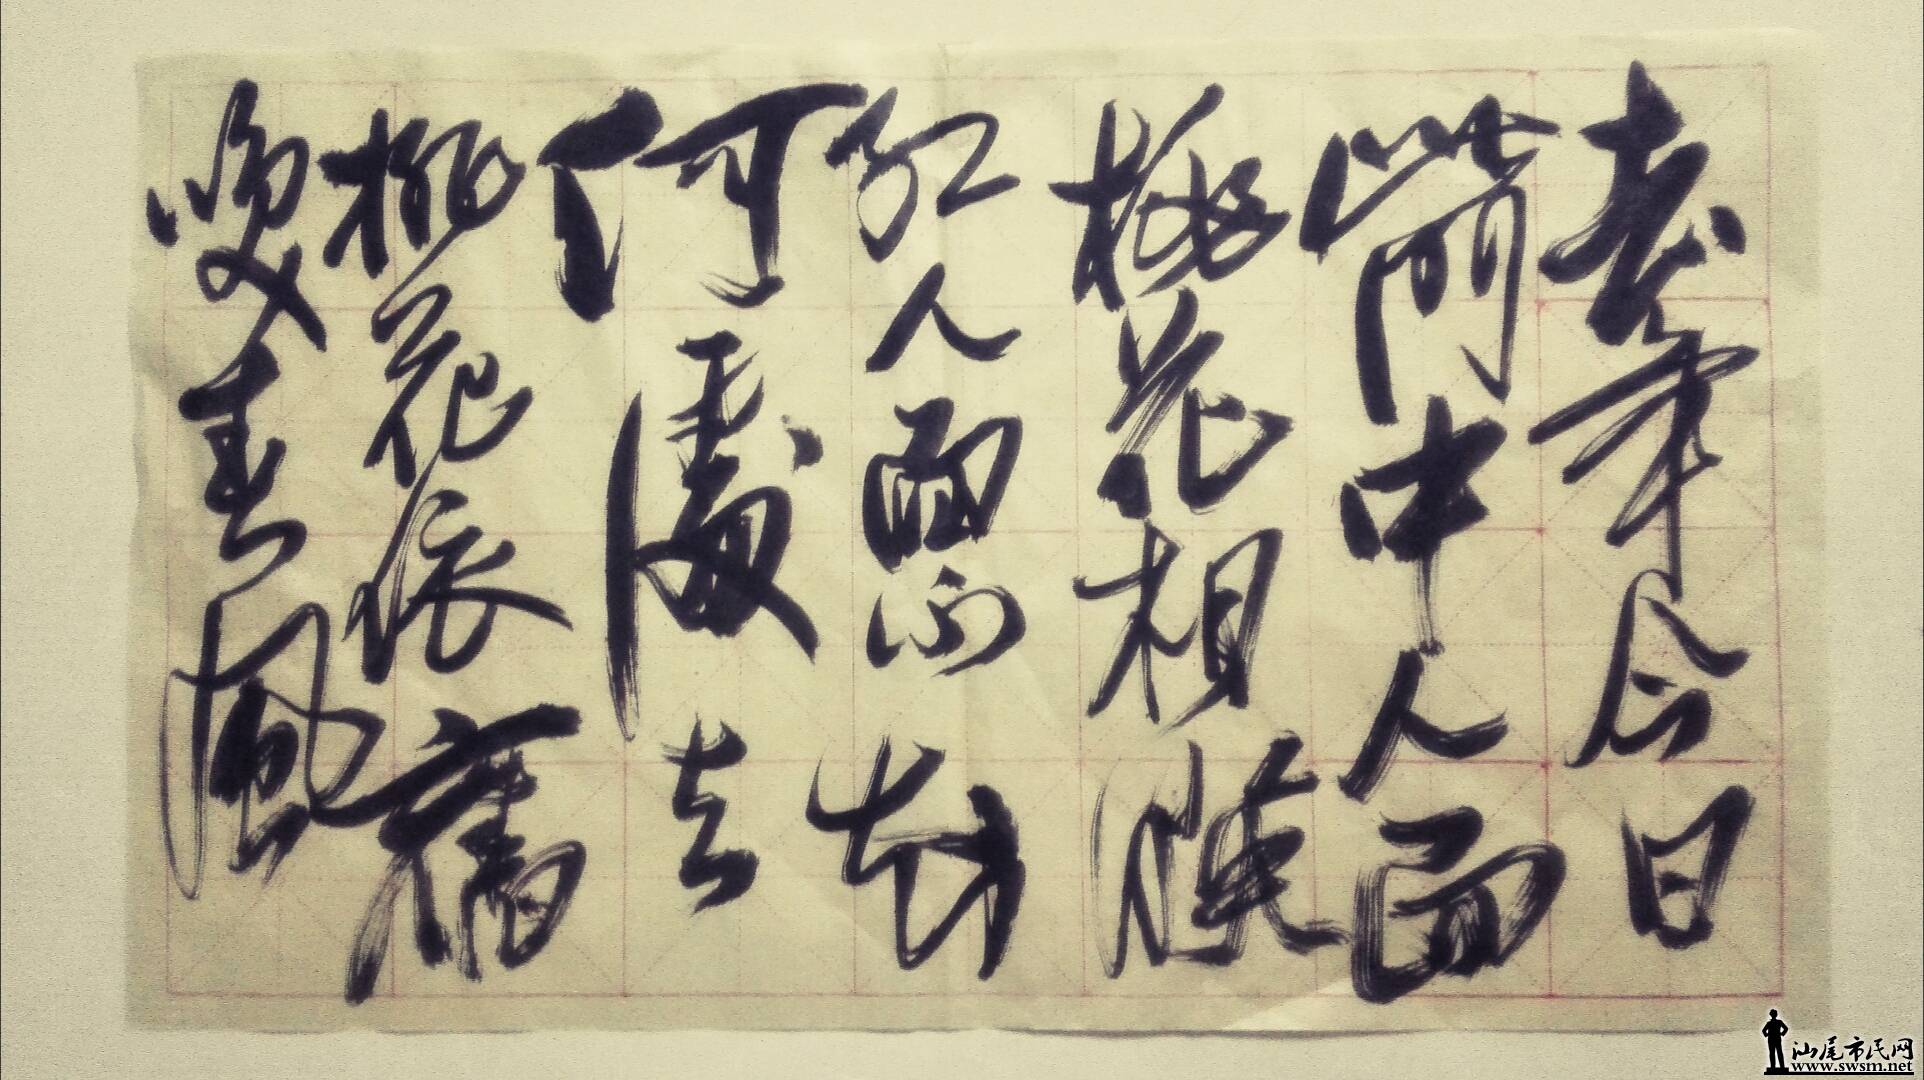 去年今日
此門中人面
桃花相映
紅人面不知
何處去
桃花依舊
咲春風
汕尾市民网
www.swsm.net